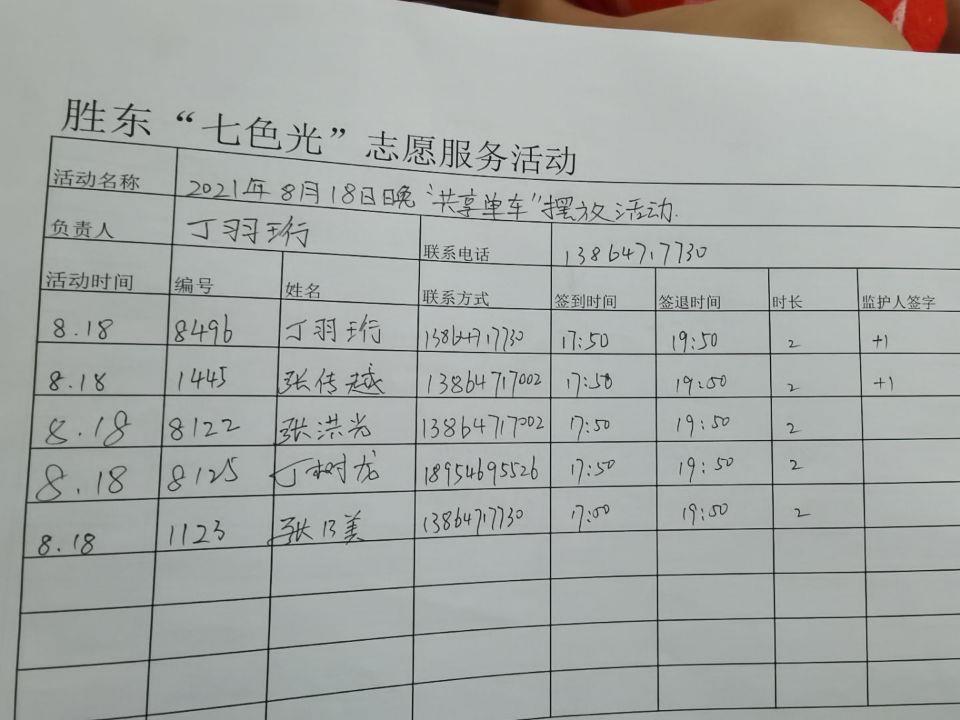 胜东“七色光”志愿服务活动
活动名称 2021年8月18日晚“共享单车”摆放活动.
负责人 丁羽珩 联系电话 13864717730
活动时间 编号 姓名 联系方式 签到时间 签退时间 时长 监护人签字
8.18 8496 丁羽珩 13864717730 17:50 19:50 2 +1
8.18 1445 张传越 13864717002 17:50 19:50 2 +1
8.18 8122 张洪光 13864717002 17:50 19:50 2
8.18 8125 丁树龙 18954695526 17:50 19:50 2
8.18 1123 张乃美 13864717730 17:50 19:50 2